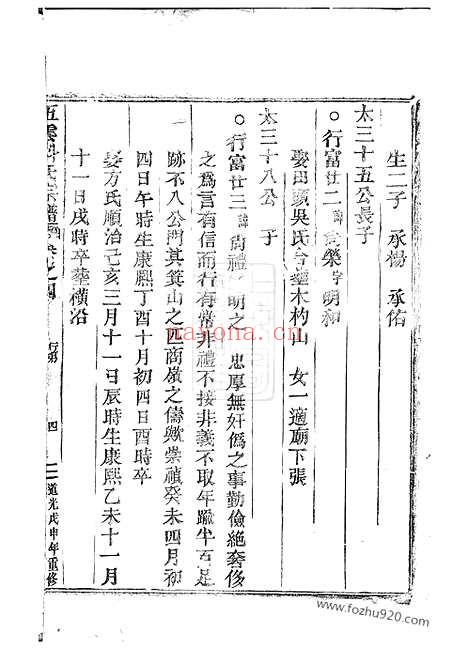 生二子 承楊 承佑
太三十五公長子
○行富廿二諱尙榮字明和
娶田頭吳氏合塟木杓山 女一適廟下張
太三十八公 子
○行富廿三諱尙禮 明之 忠厚無奸僞之事勤儉絶奢侈
之爲言有信而行有常非禮不接非義不取年踰半百足
跡不入公門其箕山之匹商嶺之儔歟崇禎癸未四月初
四日午時生康熙丁酉十月初四日酉時卒
娶方氏順治己亥三月十一日辰時生康熙乙未十一月
十一日戌時卒塟橫沿
五雲 氏宗譜 卷之四 行第 四 道光戊申年重修
nayona.cn
www.fozhu920.com